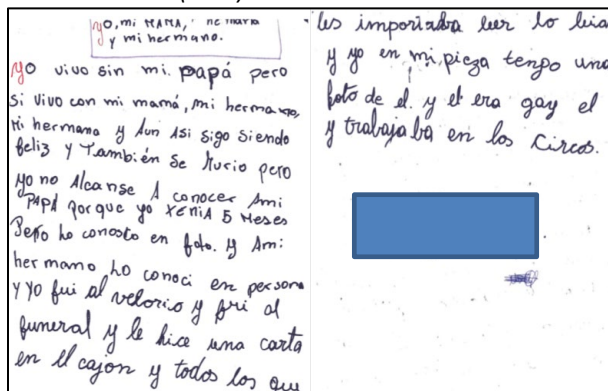 yo, mi MAMA, mi hermana
y mi hermano.
yo vivo sin mi papá pero
si vivo con mi mamá, mi hermano,
Mi hermana y Aun Asi sigo siendo
feliz y También se Murio pero
yo no Alcanse A conocer Ami
PAPÁ porque yo tenia 5 Meses
Pero lo conosco en foto. y Ami
hermano Lo conoci en persona
y yo fui al velorio y fui al
funeral y le hice una carta
en el cajon y todos los que
les importaba leer lo leia
y yo en mi pieza tengo una
foto de el. y el era gay el
y trabajaba en los Circos.